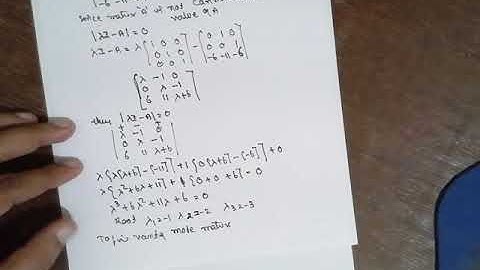 -6 -11 -
since matrix 'a' is not
value of A
|λI-A| = 0
λI-A = λ [1 0 0 0 1 0 0 0 1] - [0 1 0 0 0 1 -6 -11 -6]
[λ -1 0 0 λ -1 6 11 λ+6]
then |λI-A| = 0
+ - +
|λ -1 0 0 λ -1 6 11 λ+6|
λ[λ(λ+6) - (-11)] + 1[0(λ+6) - (-6)] + 0
λ[λ²+6λ+11] + 1[0+0+6] = 0
λ³+6λ²+11λ+6 = 0
Root λ₁=-1 λ2=-2 λ3=-3
To matrix